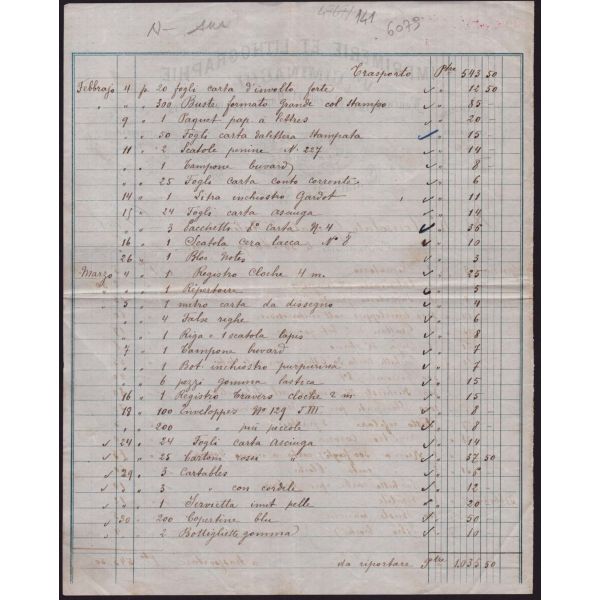 141
6079
Trasporto Ptre 543 50
Febbrajo 4 p. 20 fogli carta d'involto forte 12 50
" " 300 Buste formato grande col stampo 85 -
9 " 1 Paquet pap. à lettres 20 -
" " 50 Fogli carta da lettera stampata 15 -
11 " 2 Scatole pennine N. 227 14 -
" " 1 Tampone buvard 8 -
" " 25 Fogli carta conto corrente 6 -
14 " 1 Litra inchiostro Gardot 11
15 " 24 Fogli carta asciuga 14
" " 3 Pacchetti do carta No 4 35
16 " 1 Scatola cera lacca No 8 10
26 " 1 Bloc Notes 3
Marzo 4 " 1 Registro cloche 4 m. 25
" " 1 Répertoire 5
5 " 1 metro carta da dissegno 4
" " 4 False righe 6
" " 1 Riga e 1 scatola lapis 8
7 " 1 Tampone buvard 7
" " 1 Bot. inchiostro purpurina 7
" " 6 pezzi gomma lastica 15
16 " 1 Registro travers cloche 2 m 15
18 " 100 Enveloppes No 129 8 -
" " 200 " più piccoli 8 -
24 " 24 Fogli carta asciuga 14
" " 25 Cartoni rosei 37 50
29 " 3 Cartables
" " 3 " con cordele 12 -
" " 1 Servietta imit pelle 20 -
30 " 200 Copertine blu 50 -
" " 2 Bottigliette gomma 10
da riportare Ptre 1035 50